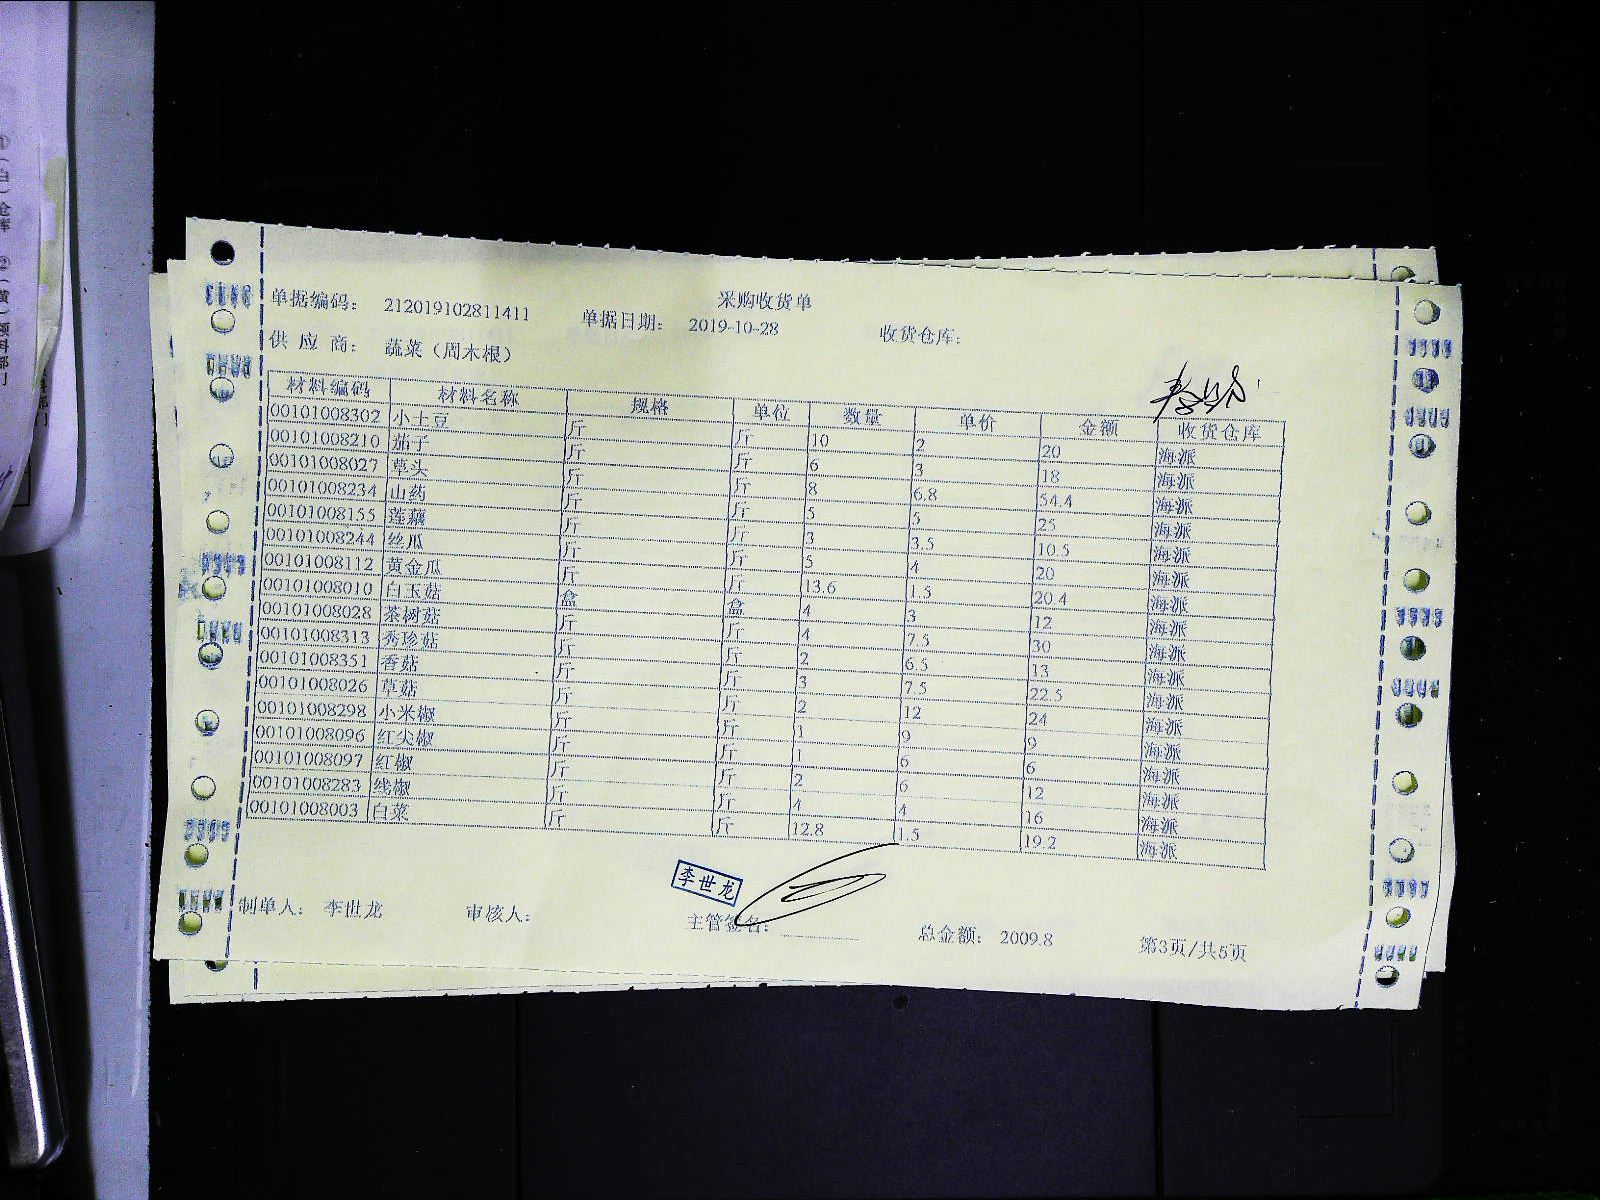 采购收货单
单据编码： 212019102811411 单据日期： 2019-10-28 收货仓库：
供 应 商： 蔬菜（周木根）
材料编码 材料名称 规格 单位 数量 单价 金额 收货仓库
00101008302 小土豆 斤 斤 10 2 20 海派
00101008210 茄子 斤 斤 6 3 18 海派
00101008027 草头 斤 斤 8 6.8 54.4 海派
00101008234 山药 斤 斤 5 5 25 海派
00101008155 莲藕 斤 斤 3 3.5 10.5 海派
00101008244 丝瓜 斤 斤 5 4 20 海派
00101008112 黄金瓜 斤 斤 13.6 1.5 20.4 海派
00101008010 白玉菇 盒 盒 4 3 12 海派
00101008028 茶树菇 斤 斤 4 7.5 30 海派
00101008313 秀珍菇 斤 斤 2 6.5 13 海派
00101008351 香菇 斤 斤 3 7.5 22.5 海派
00101008026 草菇 斤 斤 2 12 24 海派
00101008298 小米椒 斤 斤 1 9 9 海派
00101008096 红尖椒 斤 斤 1 6 6 海派
00101008097 红椒 斤 斤 2 6 12 海派
00101008283 线椒 斤 斤 4 4 16 海派
00101008003 白菜 斤 斤 12.8 1.5 19.2 海派
李世龙
制单人： 李世龙 审核人： 主管签名： 总金额： 2009.8 第3页/共5页